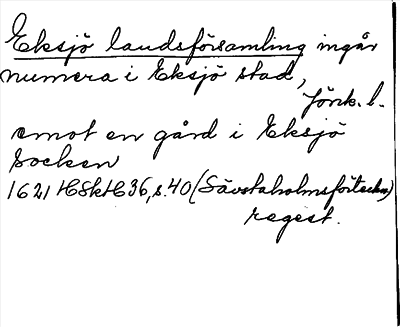 Eksjö landsförsamling ingår
numera i Eksjö stad,
Jönk. l.
emot en gård i Eksjö
socken
1621 HSkH 36, s. 40 (Sävstaholmsförtecкn)
regist.